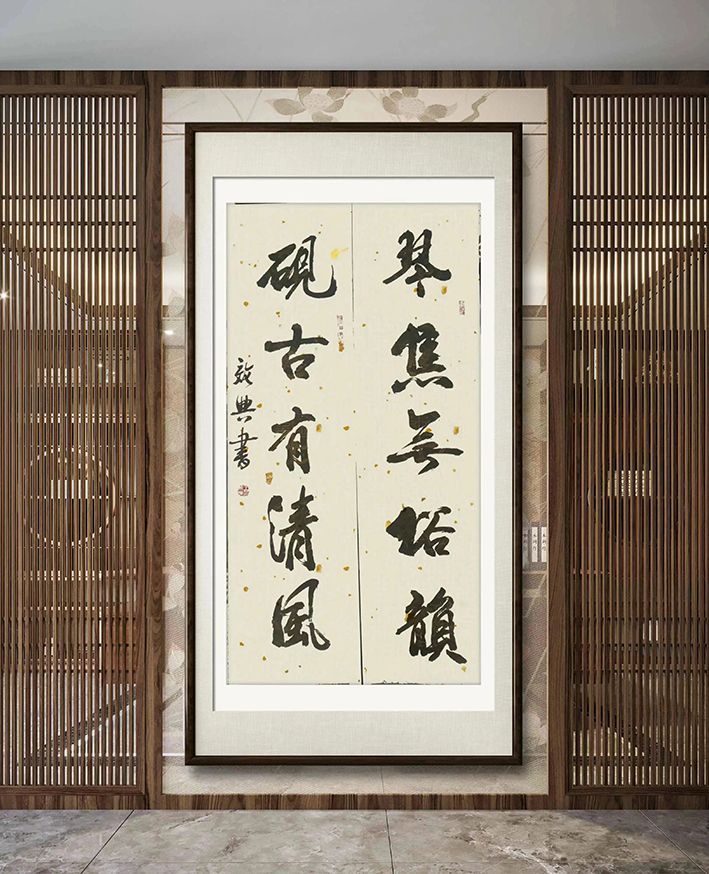 琴焦無俗韻
硯古有清風
典書